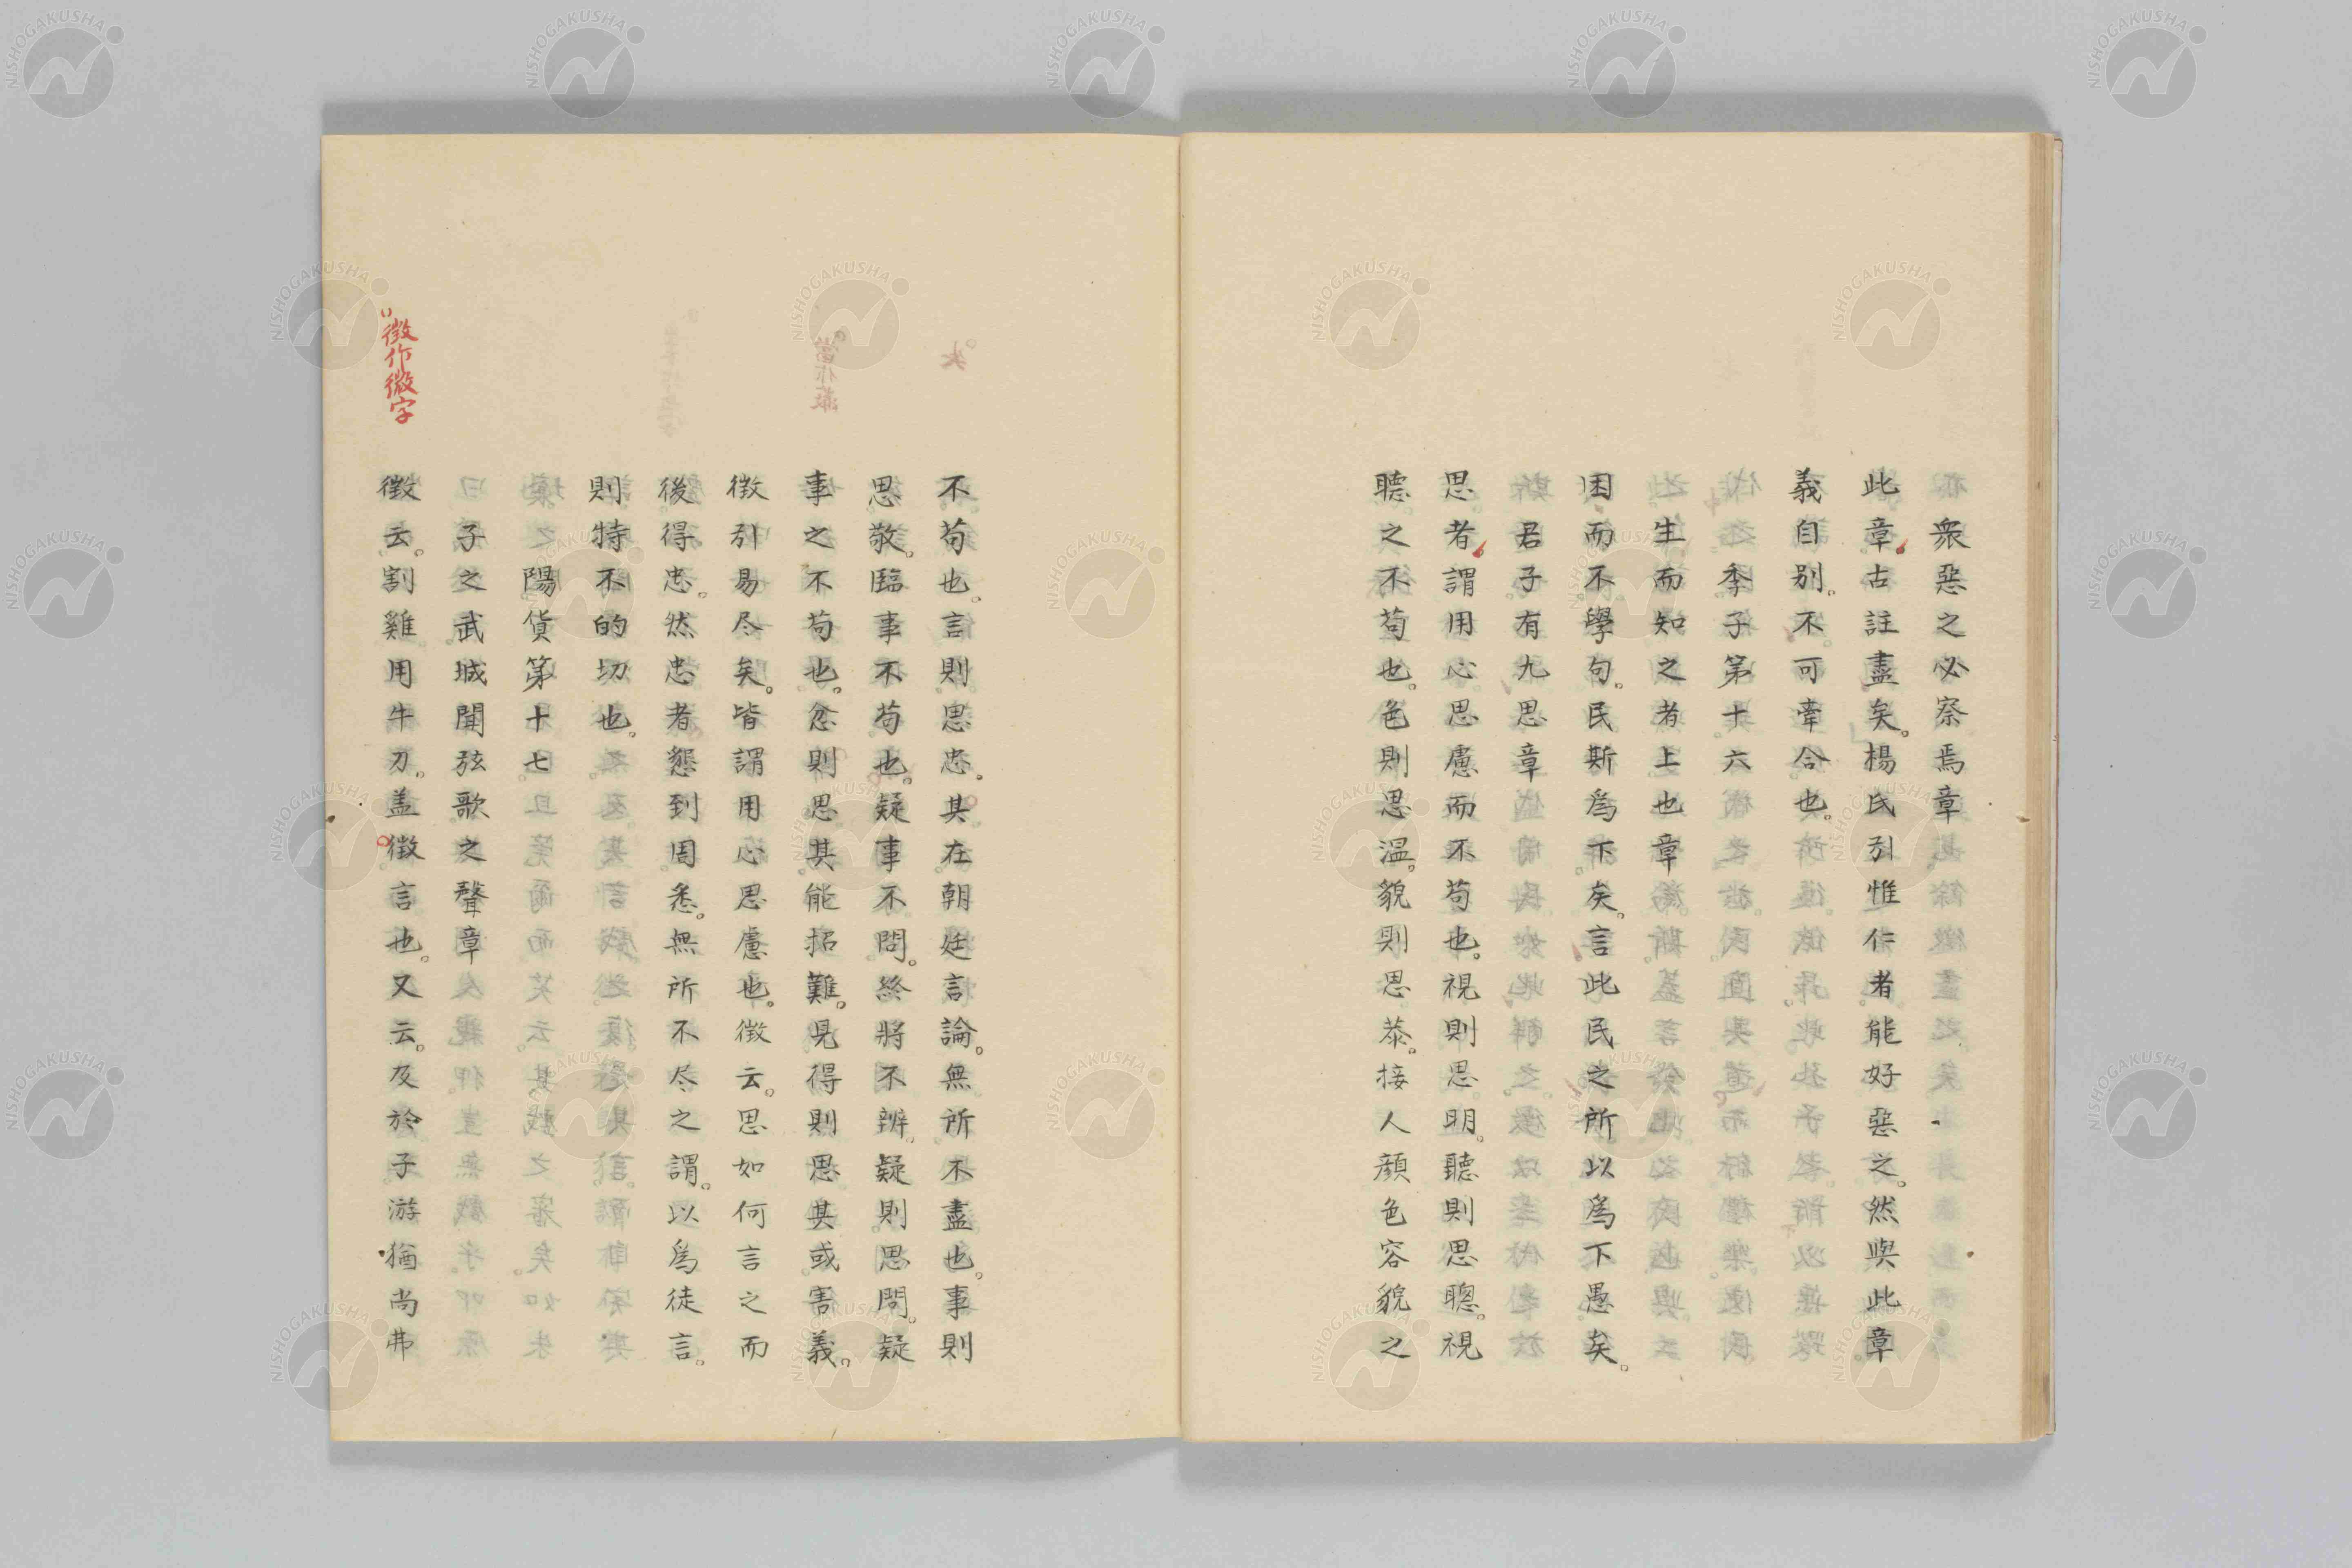 衆惡之必察焉章
此章古註盡矣。楊氏引惟仁者能好惡之。然與此章
義自別。不可牽合也。
季子第十六
生而知之者上也章
困而不學句。民斯爲下矣。言此民之所以爲下愚矣。
君子有九思章
思者謂用心思慮而不苟也。視則思明。聽則思聰。視
聽之不苟也。色則思溫。貌則思恭。接人顏色容貌之
不苟也。言則思忠。其在朝廷言論。無所不盡也。事則
思敬。臨事不苟也。疑事不問。終將不辨。疑則思問。疑
事之不苟也。忿則思其能招難。見得則思其或害義。
徴引易尽矣。皆謂用心思慮也。徴云。思如何言之而
後得忠。然忠者懇到周悉。無所不尽之謂。以爲徒言。
則特不的切也。
陽貨第十七
子之武城聞弦歌之聲章
徴云。割雞用牛刀。盖徴言也。又云。及於子游猶尚弗
徴作微字
NISHOGAKUSHA